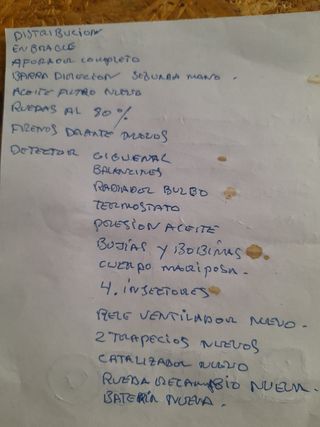 DISTRIBUCION
ENBRAGUE
AFORADOR COMPLETO
BARRA DIRECCION SEGUNDA MANO.
ACEITE FILTRO NUEVO
RUEDAS AL 80%
FRENOS DELANTE NUEVOS
DETECTOR CIGUENAL
BALANCINES
RADIADOR BULBO
TERMOSTATO
PRESION ACEITE
BUJIAS Y BOBINAS
CUERPO MARIPOSA.
4. INYECTORES
RELE VENTILADOR NUEVO.
2 TRAPECIOS NUEVOS
CATALIZADOR NUEVO
RUEDA RECAMBIO NUEVA.
BATERIA NUEVA.